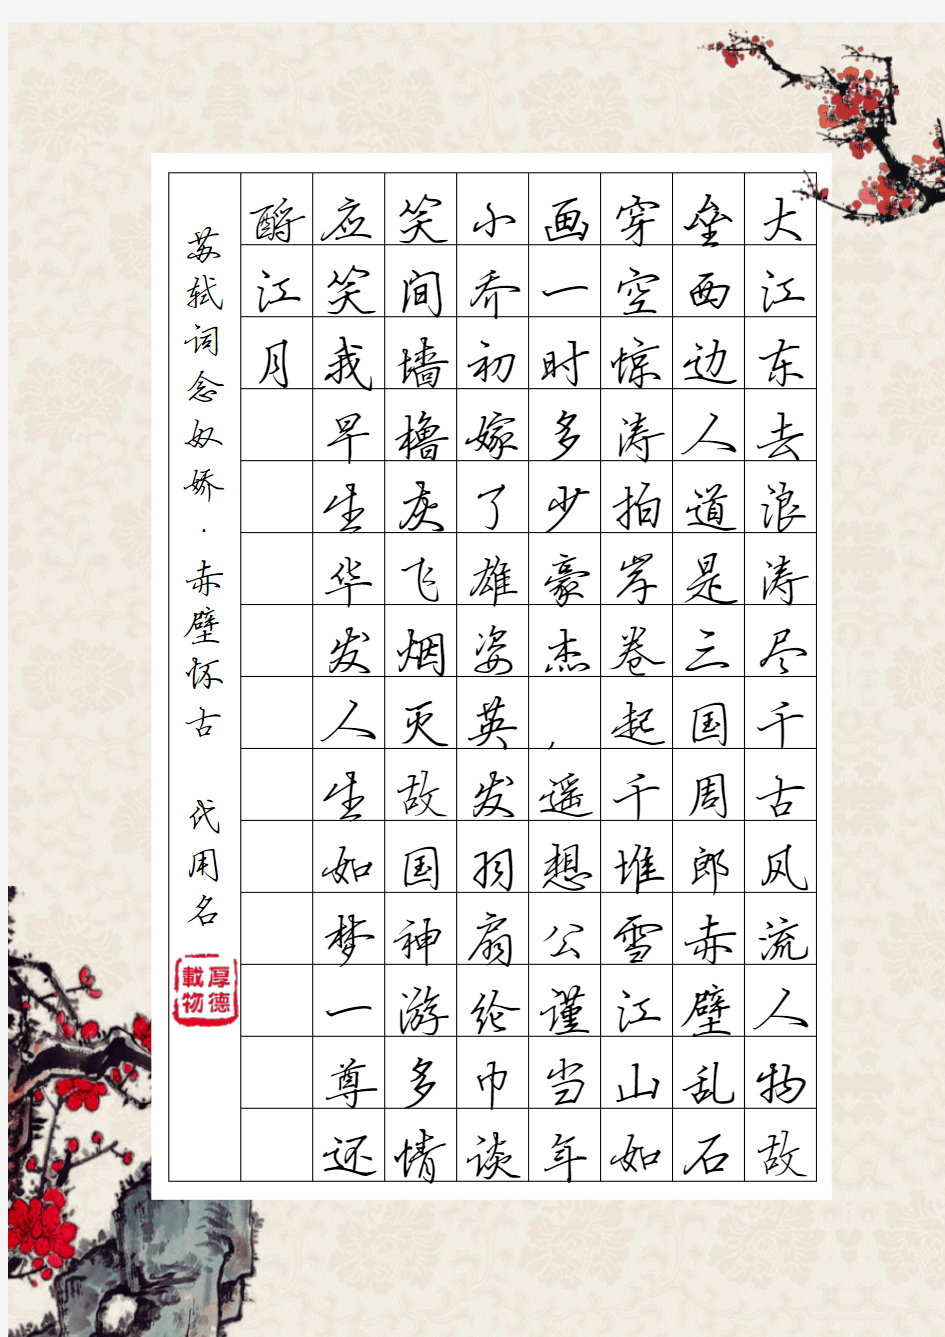 大江东去浪涛尽千古风流人物故
垒西边人道是三国周郎赤壁乱石
穿空惊涛拍岸卷起千堆雪江山如
画一时多少豪杰，遥想公谨当年
小乔初嫁了雄姿英发羽扇纶巾谈
笑间墙橹灰飞烟灭故国神游多情
应笑我早生华发人生如梦一尊还
酹江月
苏轼词念奴娇·赤壁怀古 代用名
厚德
載物